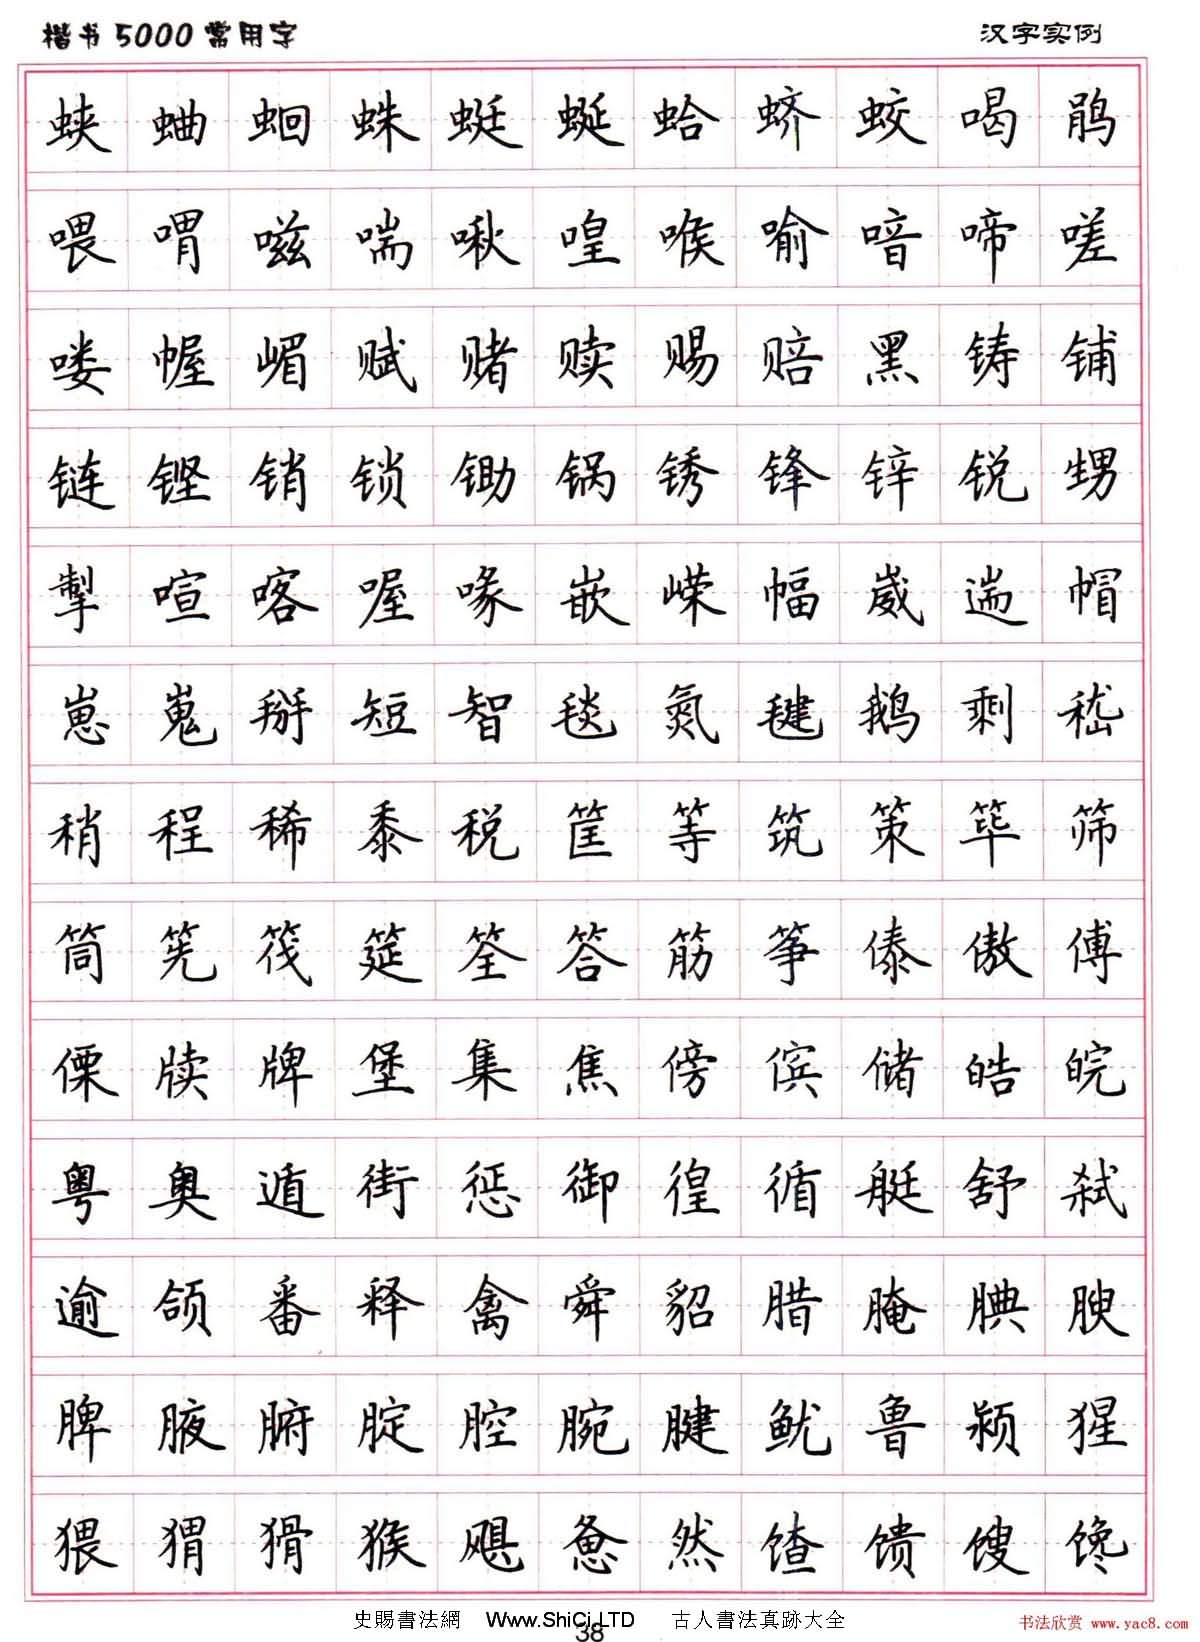 楷书5000常用字 汉字实例
蛱 蛐 蛔 蛛 蜓 蜒 蛤 蛴 蛟 喝 鹃
喂 喟 嗞 喘 啾 喤 喉 喻 喑 啼 嗟
喽 幄 嵋 赋 赌 赎 赐 赔 黑 铸 铺
链 铿 销 锁 锄 锅 锈 锋 锌 锐 甥
掣 喧 喀 喔 喙 嵌 嵘 幅 崴 遄 帽
崽 嵬 掰 短 智 毯 氮 毽 鹅 剩 嵇
稍 程 稀 黍 税 筐 等 筑 策 筚 筛
筒 筅 筏 筵 筌 答 筋 筝 傣 傲 傅
傈 牍 牌 堡 集 焦 傍 傧 储 皓 皖
粤 奥 遁 街 惩 御 徨 循 艇 舒 弑
逾 颌 番 释 禽 舜 貂 腊 腌 腆 腴
脾 腋 腑 腚 腔 腕 腱 鱿 鲁 颍 猩
猥 猬 猾 猴 飓 惫 然 馇 馈 馊 馋
史賜書法網 Www.ShiCi.LTD 古人書法真跡大全
38
书法欣赏 www.yac8.com